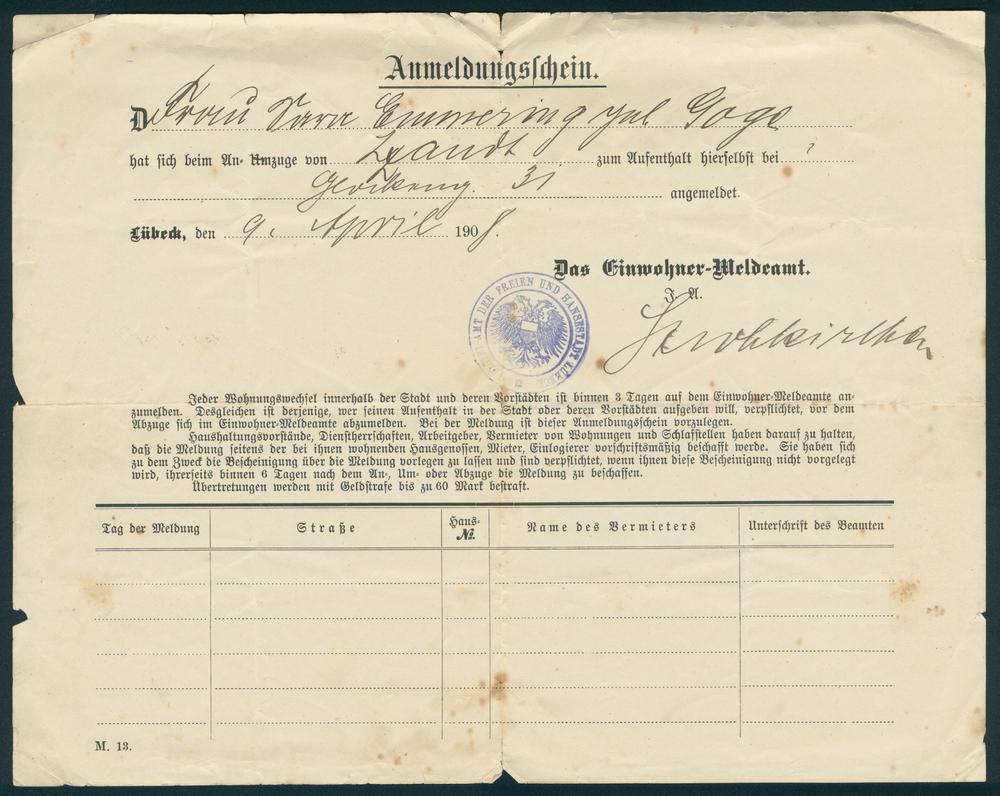 Anmeldungsschein.
D Frau Sara Emmering
hat sich beim An- Umzuge von zum Aufenthalt hierselbst bei ?
31 angemeldet.
Lübeck, den 9. April 1908.
Das Einwohner-Meldeamt.
I. A.
AMT DER FREIEN UND HANSESTADT LÜBECK
Jeder Wohnungswechsel innerhalb der Stadt und deren Vorstädten ist binnen 3 Tagen auf dem Einwohner-Meldeamte an-
zumelden. Desgleichen ist derjenige, wer seinen Aufenthalt in der Stadt oder deren Vorstädten aufgeben will, verpflichtet, vor dem
Abzuge sich im Einwohner-Meldeamte abzumelden. Bei der Meldung ist dieser Anmeldungsschein vorzulegen.
Haushaltungsvorstände, Dienstherrschaften, Arbeitgeber, Vermieter von Wohnungen und Schlafstellen haben darauf zu halten,
daß die Meldung seitens der bei ihnen wohnenden Hausgenossen, Mieter, Einlogierer vorschriftsmäßig beschafft werde. Sie haben sich
zu dem Zweck die Bescheinigung über die Meldung vorlegen zu lassen und sind verpflichtet, wenn ihnen diese Bescheinigung nicht vorgelegt
wird, ihrerseits binnen 6 Tagen nach dem An-, Um- oder Abzuge die Meldung zu beschaffen.
Übertretungen werden mit Geldstrafe bis zu 60 Mark bestraft.
Tag der Meldung Straße Haus-№. Name des Vermieters Unterschrift des Beamten
M. 13.